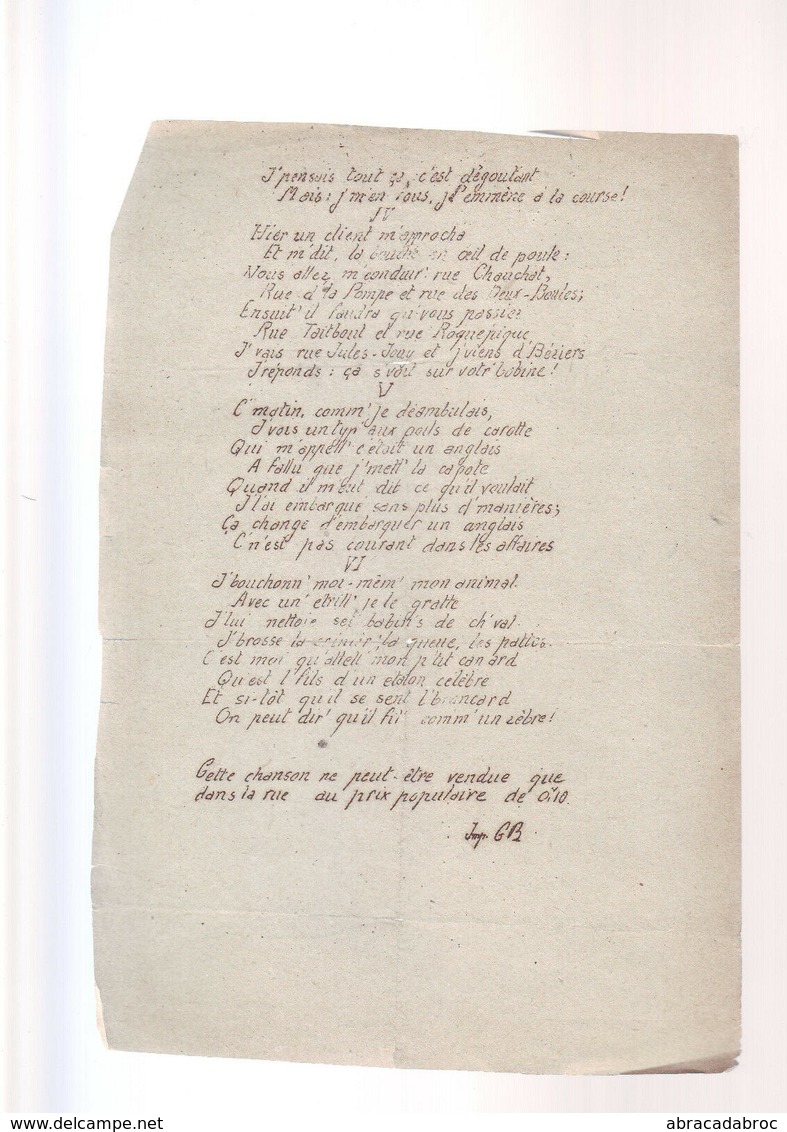 J'pensais tout ça, c'est dégoutant
Mais: j'm'en fous, j'l'emmène à la course!
IV
Hier un client m'aprocha
Et m'dit, la bouche en œil de poule:
Nous allez m'conduir' rue Chauchat,
Rue d'la Pompe et rue des Deux-Boules;
Ensuit' il faudra qu'vous passiez
Rue Taitbout et rue Roquepique,
J'vais rue Jules-Jouy et j'viens d'Béziers
J'réponds: ça s'voit sur votr' bobine!
V
C'matin, comm' je déambulais,
J'vois un typ' aux poils de carotte
Qui m'appell' c'était un anglais
A fallu que j'mett' la capote
Quand il m'eut dit ce qu'il voulait
J'l'ai embarqué sans plus d'manières;
Ça change d'embarquer un anglais
C'n'est pas courant dans les affaires
VI
J'bouchonn' moi-mêm' mon animal.
Avec un' étrill' je le gratte
J'lui nettoie ses babin's de ch'val.
J'brosse la crinièr', la queue, les pattes.
C'est moi qu'attell' mon p'tit canard
Qu'est l'fils d'un etalon celèbre
Et si-tôt qu'il se sent l'brancard
On peut dir' qu'il fil' comm un zèbre!
Cette chanson ne peut-être vendue que
dans la rue au prix populaire de 0,10.
Imp. GB
My-WorldCollection.com
abracadabroc